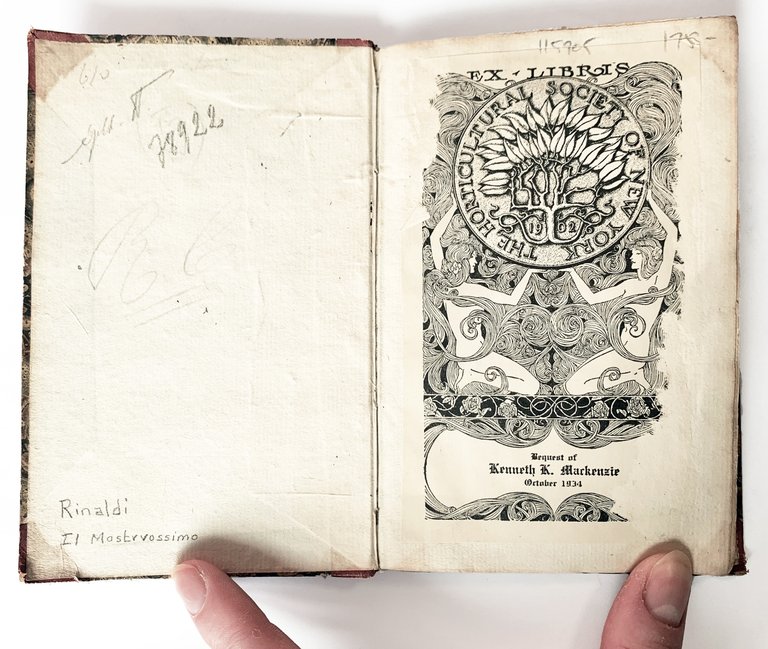 610
78922
Rinaldi
Il Mostrvossimo
115905
1785-
EX · LIBRIS
THE HORTICULTURAL SOCIETY OF NEW YORK
1902
Bequest of
Kenneth K. Mackenzie
October 1934